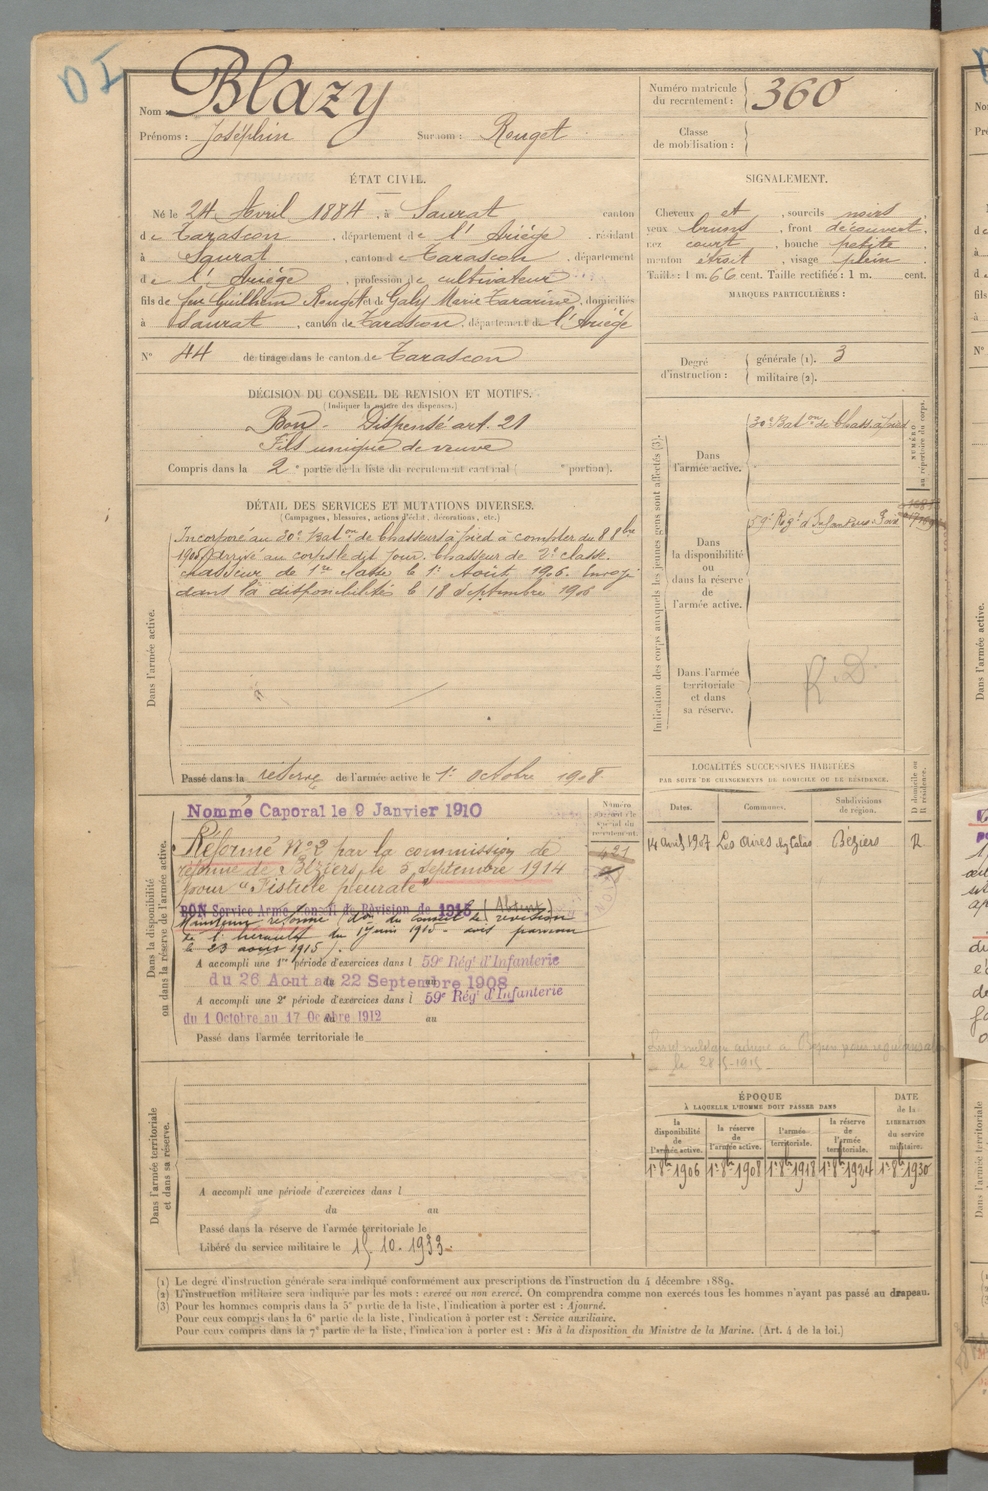 D I
Nom : Blazy
Prénoms : Joséphin Surnom : Rouget
Numéro matricule du recrutement : 360
Classe de mobilisation :
ÉTAT CIVIL.
Né le 24 Avril 1884, à Saurat canton
de Tarascon, département de l'Ariège, résidant
à Saurat, canton de Tarascon, département
de l'Ariège, profession de cultivateur
fils de feu Guilhem Rouget et de Galy Marie, domiciliés
à Saurat, canton de Tarascon, département de l'Ariège
N° 44 de tirage dans le canton de Tarascon
SIGNALEMENT.
Cheveux et, sourcils noirs,
yeux bruns, front découvert,
nez court, bouche petite,
menton étroit, visage plein
Taille : 1 m. 66 cent. Taille rectifiée : 1 m. cent.
MARQUES PARTICULIÈRES :
Degré d'instruction : générale (1). 3
militaire (2).
DÉCISION DU CONSEIL DE REVISION ET MOTIFS.
(Indiquer la nature des dispenses.)
Bon - Dispensé art. 21
Fils unique de veuve
Compris dans la 2e partie de la liste du recrutement cantonal ( e portion).
DÉTAIL DES SERVICES ET MUTATIONS DIVERSES.
(Campagnes, blessures, actions d'éclat, décorations, etc.)
Dans l'armée active.
Incorporé au 30e Baton de Chasseurs à pied à compter du 8 8bre
arrivé au corps le dit jour. Chasseur de 2e classe.
chasseur de 1re classe le 1er Août 1906. Envoyé
dans la disponibilité le 18 Septembre 1906
Passé dans la réserve de l'armée active le 1er Octobre 1908
Indication des corps auxquels les jeunes gens sont affectés (3).
NUMÉRO au répertoire du corps.
Dans l'armée active.
30e Baton de Chass. à pied
Dans la disponibilité ou dans la réserve de l'armée active.
59e Régt d'Infanterie
Dans l'armée territoriale et dans sa réserve.
R. D.
LOCALITÉS SUCCESSIVES HABITÉES
PAR SUITE DE CHANGEMENTS DE DOMICILE OU DE RÉSIDENCE.
Dates. Communes. Subdivisions de région. D domicile ou R résidence.
14 Avril 1907 Les Aires Béziers R
Dans la disponibilité ou dans la réserve de l'armée active.
Nommé Caporal le 9 Janvier 1910
Réformé N° 2 par la commission de
réforme de Béziers, le 5 Septembre 1914
pour "Fistule pleurale"
BON Service Armé Conseil de Révision de 1915 (Absent)
Maintenu réformé (don du conseil de révision
de l'hérault du 17 juin 1915 - avis parvenu
le 23 aout 1915).
A accompli une 1re période d'exercices dans l 59e Régt d'Infanterie
du 26 Aout au 22 Septembre 1908
A accompli une 2e période d'exercices dans l 59e Régt d'Infanterie
du 1 Octobre au 17 Octobre 1912
Passé dans l'armée territoriale le
le 28-5-1915
ÉPOQUE
À LAQUELLE L'HOMME DOIT PASSER DANS
la disponibilité de l'armée active. la réserve de l'armée active. l'armée territoriale. la réserve de l'armée territoriale. DATE de la LIBÉRATION du service militaire.
1er 8bre 1906 1er 8bre 1908 1er 8bre 1918 1er 8bre 1924 1er 8bre 1930
Dans l'armée territoriale et dans sa réserve.
A accompli une période d'exercices dans l
du au
Passé dans la réserve de l'armée territoriale le
Libéré du service militaire le 15.10.1933.
(1) Le degré d'instruction générale sera indiqué conformément aux prescriptions de l'instruction du 4 décembre 1889.
(2) L'instruction militaire sera indiquée par les mots : exercé ou non exercé. On comprendra comme non exercés tous les hommes n'ayant pas passé au drapeau.
(3) Pour les hommes compris dans la 5e partie de la liste, l'indication à porter est : Ajourné.
Pour ceux compris dans la 6e partie de la liste, l'indication à porter est : Service auxiliaire.
Pour ceux compris dans la 7e partie de la liste, l'indication à porter est : Mis à la disposition du Ministre de la Marine. (Art. 4 de la loi.)